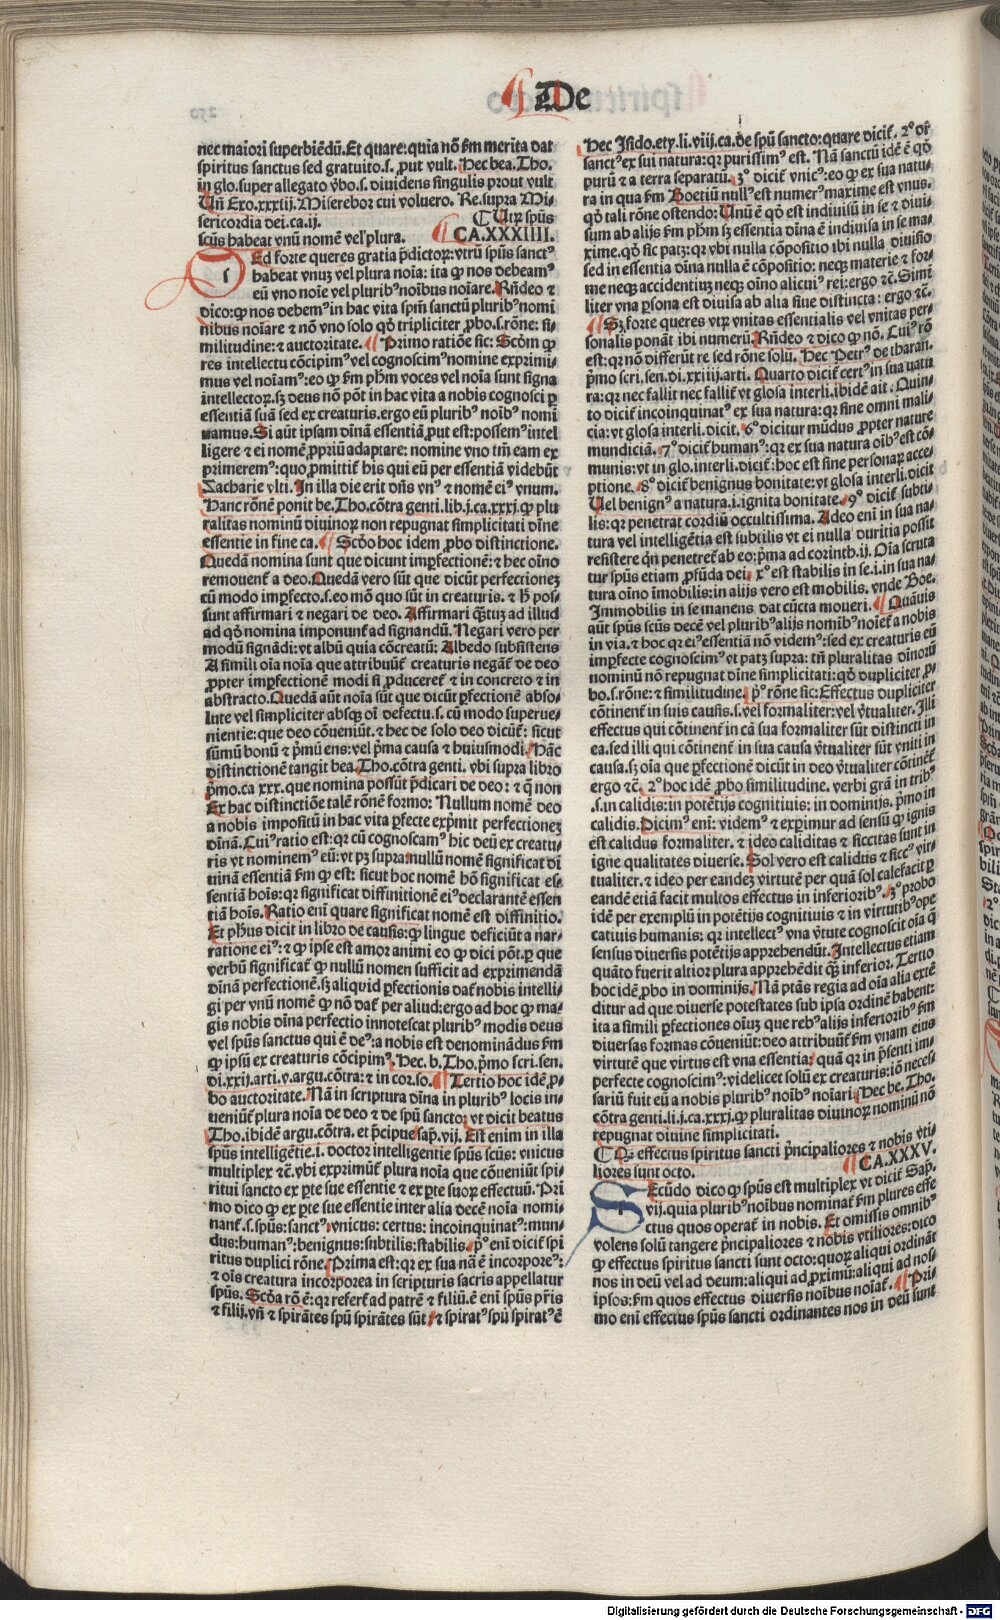 De
nec maiori superbiēdū. Et quare: quia nō ẜm merita dat
spiritus sanctus sed gratuito .s. ꝓut vult. Hec bea. Tho.
in glo. super allegato v̄bo .s. diuidens singulis prout vult
Vn̄ Exo. xxxiij. Miserebor cui voluero. Re. supra Mi⸗
sericordia dei. ca. ij. ¶ Utꝝ spūs
scūs habeat vnū nomē vel plura. CA. XXXIIII.
sEd forte queres gratia p̄dictoꝝ: vtrū spūs sanctꝰ
habeat vnuꝫ vel plura noīa: ita ꝙ nos debeamꝰ
eū vno noīe vel pluribꝰ noībus noīare. Rn̄deo ⁊
dico: ꝙ nos debemꝰ in hac vita spm̄ sanctū pluribꝰ nomi
nibus noīare ⁊ nō vno solo qd̓ tripliciter ꝓbo .s. rōne: si⸗
militudine: ⁊ auctoritate. ¶ Primo ratiōe sic: Scd̓m ꝙ
res intellectu cōcipimꝰ vel cognoscimꝰ nomine exprimi⸗
mus vel noīamꝰ: eo ꝙ ẜm phm̄ voces vel noīa sunt signa
intellectoꝝ. sꝫ deus nō pōt in hac vita a nobis cognosci ꝑ
essentiā suā sed ex creaturis. ergo eū pluribꝰ noībꝰ nomi
namus. Si aūt ipsam dīnā essentiā ꝓut est: possemꝰ intel
ligere ⁊ ei nomē ꝓpriū adaptare: nomine vno tm̄ eam ex
primeremꝰ: quo ꝓmittit̄ his qui eū per essentiā videbūt
Zacharie vlti. In illa die erit dn̄s vnꝰ ⁊ nomē eiꝰ vnum.
Hanc rōnē ponit be. Tho. cōtra genti. lib. j. ca. xxxj. ꝙ plu
ralitas nominū diuinoꝝ non repugnat simplicitati dīne
essentie in fine ca. ¶ Scd̓o hoc idem ꝓbo distinctione.
Quedā nomina sunt que dicunt imꝑfectionē: ⁊ hec oīno
remouent̄ a deo. Quedā vero sūt que dicūt perfectioneꝫ
cū modo imꝑfecto .s. eo mō quo sūt in creaturis. ⁊ h̓ pos⸗
sunt affirmari ⁊ negari de deo. Affirmari q̄ꝫtuꝫ ad illud
ad qd̓ nomina imponunt̄ ad signandū. Negari vero per
modū signādi: vt albū quia cōcreatū: Albedo subsistens
A simili oīa noīa que attribuūt̄ creaturis negāt̄ de deo
ꝓpter imꝑfectionē modi si ꝓduceret̄ ⁊ in concreto ⁊ in
abstracto. Quedā aūt noīa sūt que dicūt ꝑfectionē abso⸗
lute vel simpliciter absqꝫ oī defectu .s. cū modo superue⸗
nientie: que deo cōueniūt. ⁊ hec de solo deo dicūt̄: sicut
sūmū bonū ⁊ p̄mū ens: vel p̄ma causa ⁊ huiusmodi. Hāc
distinctionē tangit bea. Tho. cōtra genti. vbi supra libro
p̄mo. ca xxx. que nomina possūt p̄dicari de deo: ⁊ q̄ non
Ex hac distinctiōe talē rōnē formo: Nullum nomē deo
a nobis impositū in hac vita ꝑfecte exp̄mit perfectioneꝫ
dīnā. Cuiꝰ ratio est: qꝛ cū cognoscamꝰ hic deū ex creatu⸗
ris vt nominemꝰ eū: vt pꝫ supra: nullū nomē significat di
uinā essentiā ẜm ꝙ est: sicut hoc nomē hō significat es⸗
sentiā hoīs: qꝛ significat diffinitionē eiꝰ declarantē essen
tiā hoīs. Ratio enī quare significat nomē est diffinitio.
Et phūs dicit in libro de causis: ꝙ lingue deficiūt a nar⸗
ratione eiꝰ: ⁊ ꝙ ipse est amor animi eo ꝙ dici pōt. ꝑ que
verbū significat̄ ꝙ nullū nomen sufficit ad exprimendā
dīnā perfectionē. sꝫ aliquid ꝑfectionis dat̄ nobis intelli⸗
gi per vnū nomē ꝙ nō dat̄ per aliud: ergo ad hoc ꝙ ma⸗
gis nobis dīna perfectio innotescat pluribꝰ modis deus
vel spūs sanctus qui ē deꝰ: a nobis est denominādus ẜm
ꝙ ipsū ex creaturis cōcipimꝰ. Hec. b. Tho. p̄mo scri. sen.
di. xxij. arti. v. argu. cōtra: ⁊ in cor. so. ¶ Tertio hoc idē ꝓ⸗
bo auctoritate. Nā in scriptura dīna in pluribꝰ locis in⸗
ueniūt̄ plura noīa de deo ⁊ de spū sancto: vt dicit beatus
Tho. ibidē argu. cōtra. et p̄cipue sap̄. vij. Est enim in illa
spūs intelligētie .i. doctor intelligentie spūs scūs: vnicus
multiplex ⁊c̄. vbi exprimūt̄ plura noīa que cōueniūt spi⸗
ritui sancto ex ꝑte sue essentie ⁊ ex ꝑte suoꝝ effectuū. Pri
mo dico ꝙ ex ꝑte sue essentie inter alia decē noīa nomi⸗
nant̄ .s. spūs: sanctꝰ: vnicus: certus: incoinquinatꝰ: mun⸗
dus: humanꝰ: benignus: subtilis: stabilis. pꝰ enī dicit̄ spi
ritus duplici rōne. Prima est: qꝛ ex sua nā ē incorporeꝰ:
⁊ oīs creatura incorporea in scripturis sacris appellatur
spūs. Scd̓a rō ē: qꝛ refert̄ ad patrē ⁊ filiū. ē eni spūs pr̄is
⁊ filij. vn̄ ⁊ spirātes spū spirātes sūt: ⁊ spiratꝰ spū spiratꝰ ē
Hec Isido. ety. li. viij. ca. de spū sancto: quare dicit̄. 2ꝰ dr̄
sanctꝰ ex sui natura: qꝛ purissimꝰ est. Nā sanctū idē ē qd̓
purū ⁊ a terra separatū. 3ꝰ dicit̄ vnicꝰ: eo ꝙ ex sua natu⸗
ra in qua ẜm Boetiū nullꝰ est numerꝰ maxime est vnus.
qd̓ tali rōne ostendo: Unū ē qd̓ est indiuisū in se ⁊ diui⸗
sum ab alijs ẜm phm̄ sꝫ essentia dīna ē indiuisa in se ma⸗
xime. qd̓ sic patꝫ: qꝛ vbi nulla cōpositio ibi nulla diuisio
sed in essentia dīna nulla ē cōpositio: neqꝫ materie ⁊ for⸗
me neqꝫ accidentiuꝫ neqꝫ oīno alicuiꝰ rei: ergo ⁊c̄. Simi
liter vna ꝑsona est diuisa ab alia siue distincta: ergo ⁊c̄.
¶ Sꝫ forte queres vtꝝ vnitas essentialis vel vnitas per⸗
sonalis ponāt ibi numerū. Rn̄deo ⁊ dico ꝙ nō. Cuiꝰ rō
est: qꝛ nō differūt re sed rōne solū. Hec Petrꝰ de tharan.
p̄mo scri. sen. di. xxiiij. arti. Quarto dicit̄ certꝰ in sua natu
ra: qꝛ nec fallit nec fallit̄ vt glosa interli. ibidē ait. Quin⸗
to dicit̄ incoinquinatꝰ ex sua natura: qꝛ sine omni mali⸗
cia: vt glosa interli. dicit. 6ꝰ dicitur mūdus ꝓpter nature
mundiciā. 7ꝰ dicit̄ humanꝰ: qꝛ ex sua natura oībꝰ est cō⸗
munis: vt in glo. interli. dicit̄: hoc est sine personaꝝ acce⸗
ptione. 8ꝰ dicit̄ benignus bonitate: vt glosa interli. dicit
Uel benignꝰ a natura .i. ignita bonitate. 9ꝰ dicit̄ subti⸗
lis: qꝛ penetrat cordiū occultissima. Adeo eni in sua na⸗
tura vel intelligētia est subtilis vt ei nulla duritia possit
resistere qn̄ penetret̄ ab eo: p̄ma ad corinth. ij. Oīa scruta
tur spūs etiam ꝓfūda dei. xꝰ est stabilis in se .i. in sua na⸗
tura oīno īmobilis: in alijs vero est mobilis. vnde Boe.
Immobilis in se manens dat cūcta moueri. ¶ Quāuis
aūt spūs scūs decē vel pluribꝰ alijs nomībꝰ noīet̄ a nobis
in via. ⁊ hoc qꝛ eiꝰ essentiā nō videmꝰ: sed ex creaturis eū
imꝑfecte cognoscimꝰ vt patꝫ supra: tn̄ pluralitas dīnorū
nominū nō repugnat dīne simplicitati: qd̓ dupliciter ꝓ⸗
bo .s. rōne: ⁊ similitudine. pꝰ rōne sic: Effectus dupliciter
cōtinent̄ in suis causis .s. vel formaliter: vel v̄tualiter. Illi
effectus qui cōtinent̄ in cā sua formaliter sūt distincti in
ea. sed illi qui cōtinent̄ in sua causa v̄tualiter sūt vniti in
causa. sꝫ oīa que ꝑfectionē dicūt in deo v̄tualiter cōtinēt̄
ergo ⁊c̄. 2ꝰ hoc idē ꝓbo similitudine. verbi grā in tribꝰ
.s. in calidis: in potētijs cognitiuis: in dominijs. p̄mo in
calidis. Dicimꝰ eni: videmꝰ ⁊ experimur ad sensū ꝙ ignis
est calidus formaliter. ⁊ ideo caliditas ⁊ siccitas sunt in
igne qualitates diuerse. Sol vero est calidus ⁊ siccꝰ vir⸗
tualiter. ⁊ ideo per eandeꝫ virtutē per quā sol calefacit ꝑ
eandē etiā facit multos effectus in inferioribꝰ. 3ꝰ probo
idē per exemplū in potētijs cognitiuis ⁊ in virtutibꝰ ope
catiuis humanis: qꝛ intellectꝰ vna v̄tute cognoscit oīa q̄
sensus diuersis potētijs apprehendūt. Intellectus etiam
quāto fuerit altior plura apprehēdit q̄ꝫ inferior. Tertio
hoc idē ꝓbo in dominijs. Nā ptās regia ad oīa alia extē
ditur ad que diuerse potestates sub ipsa ordinē habent:
ita a simili ꝑfectiones oīuꝫ que rebꝰ alijs inferioribꝰ ẜm
diuersas formas cōueniūt: deo attribuūt̄ ẜm vnam eius
virtutē que virtus est vna essentia: quā qꝛ in p̄senti im⸗
perfecte cognoscimꝰ: videlicet solū ex creaturis: iō necesa
sariū fuit eū a nobis pluribꝰ noībꝰ noīari. Hec be. Tho.
cōtra genti. li. j. ca. xxxj. ꝙ pluralitas diuinoꝝ nominū nō
repugnat diuine simplicitati.
¶ Qꝫ effectus spiritus sancti p̄ncipaliores ⁊ nobis vti⸗
liores sunt octo. CA. XXXV.
SEcūdo dico ꝙ spūs est multiplex vt dicit̄ Sap̄.
vij. quia pluribꝰ noībus nominat̄ ẜm plures effe
ctus quos operat̄ in nobis. Et omissis omnibꝰ
volens solū tangere p̄ncipaliores ⁊ nobis vtiliores: dico
ꝙ effectus spiritus sancti sunt octo: quoꝝ aliqui ordināt
nos in deū vel ad deum: aliqui ad ꝓximū: aliqui ad nos
ipsos: ẜm quos effectus diuersis noībus noīat̄. ¶ Pri⸗
mo eni effectus spūs sancti ordinantes nos in deū sunt
Digitalisierung gefördert durch die Deutsche Forschungsgemeinschaft - DFG